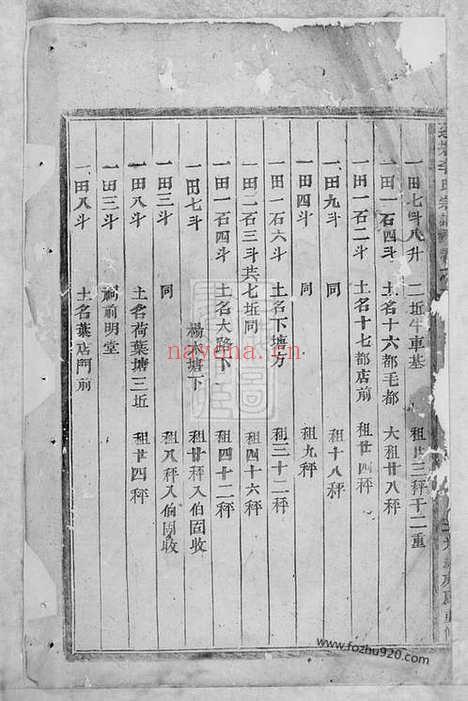 李氏宗譜
一田七斗八升 二坵牛車基 租廿三秤于二重
一田一石四斗 土名十六都毛都 大租廿八秤
一田一石二斗 土名十七都店前 租廿四秤
一田九斗 同 租十八秤
一田四斗 同 租九秤
一田一石六斗 土名下塘方 租三十二秤
一田二石三斗共七坵同 租四十六秤
一田一石四斗 土名大路下 租四十二秤
一田七斗 楊 塘下 租廿秤入伯固收
一田三斗 同 租八秤入伯固收
一田八斗 土名荷葉塘三坵 租廿四秤
一田三斗 祠前明堂
一田八斗 土名葉店門前
nayona.cn
www.fozhu920.com